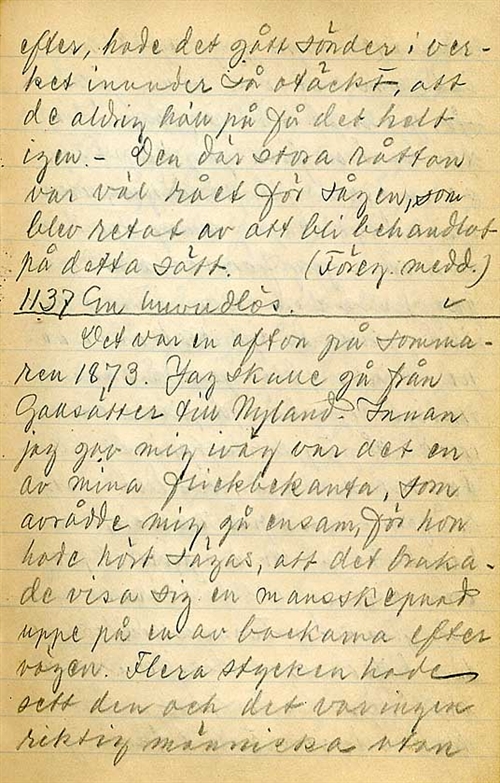 efter, hade det gått sönder i ver-
ket inunder så otäckt, att
de aldrig höll på få det helt
igen. - Den där stora råttan
var väl rået för sågen, som
blev retat av att bli behandlat
på detta sätt. (Föreg. medd.)
1137 En huvudlös.
Det var en afton på somma-
ren 1873. Jag skulle gå från
Gallsätter till Nyland. Innan
jag gav mig iväg var det en
av mina flickbekanta, som
avrådde mig gå ensam, för hon
hade hört sägas, att det bruka-
de visa sig en mansskepnad
uppe på en av backarna efter
vägen. Flera stycken hade
sett den och det var ingen
riktig människa utan